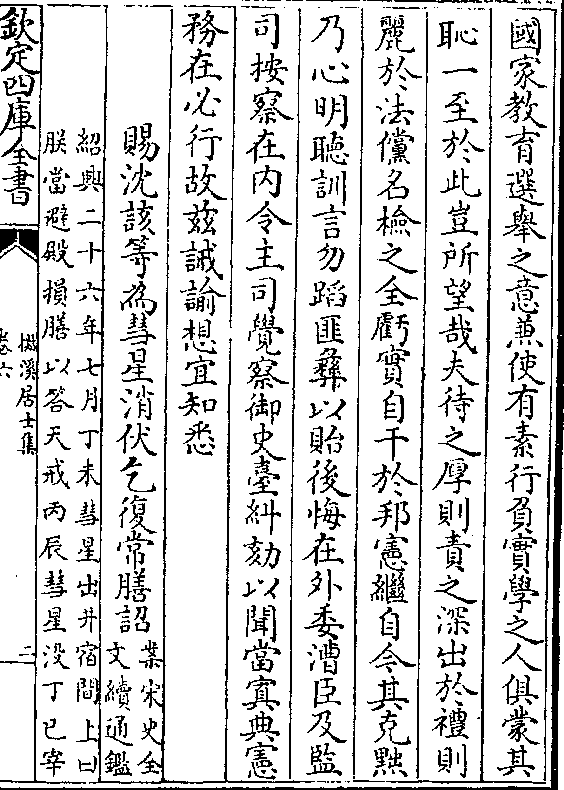 國家教育選舉之意兼使有素行負實學之人俱蒙其
恥一至於此豈所望哉夫待之厚則責之深出於禮則
麗於法儻名檢之全虧實自干於邦憲繼自今其克黜
乃心明聽訓言勿蹈匪彝以貽後悔在外委漕臣及監
司按察在内令主司覺察御史臺糾劾以聞當寘典憲
務在必行故兹誡諭想宜知悉
賜沈該等為彗星消伏乞復常膳詔
葉宋史全
文續通鑑
紹興二十六年七月丁未彗星出井宿間上曰
朕當避殿損膳以答天戒丙辰彗星没丁巳宰
欽定四庫全書
溪居士集
卷六
二